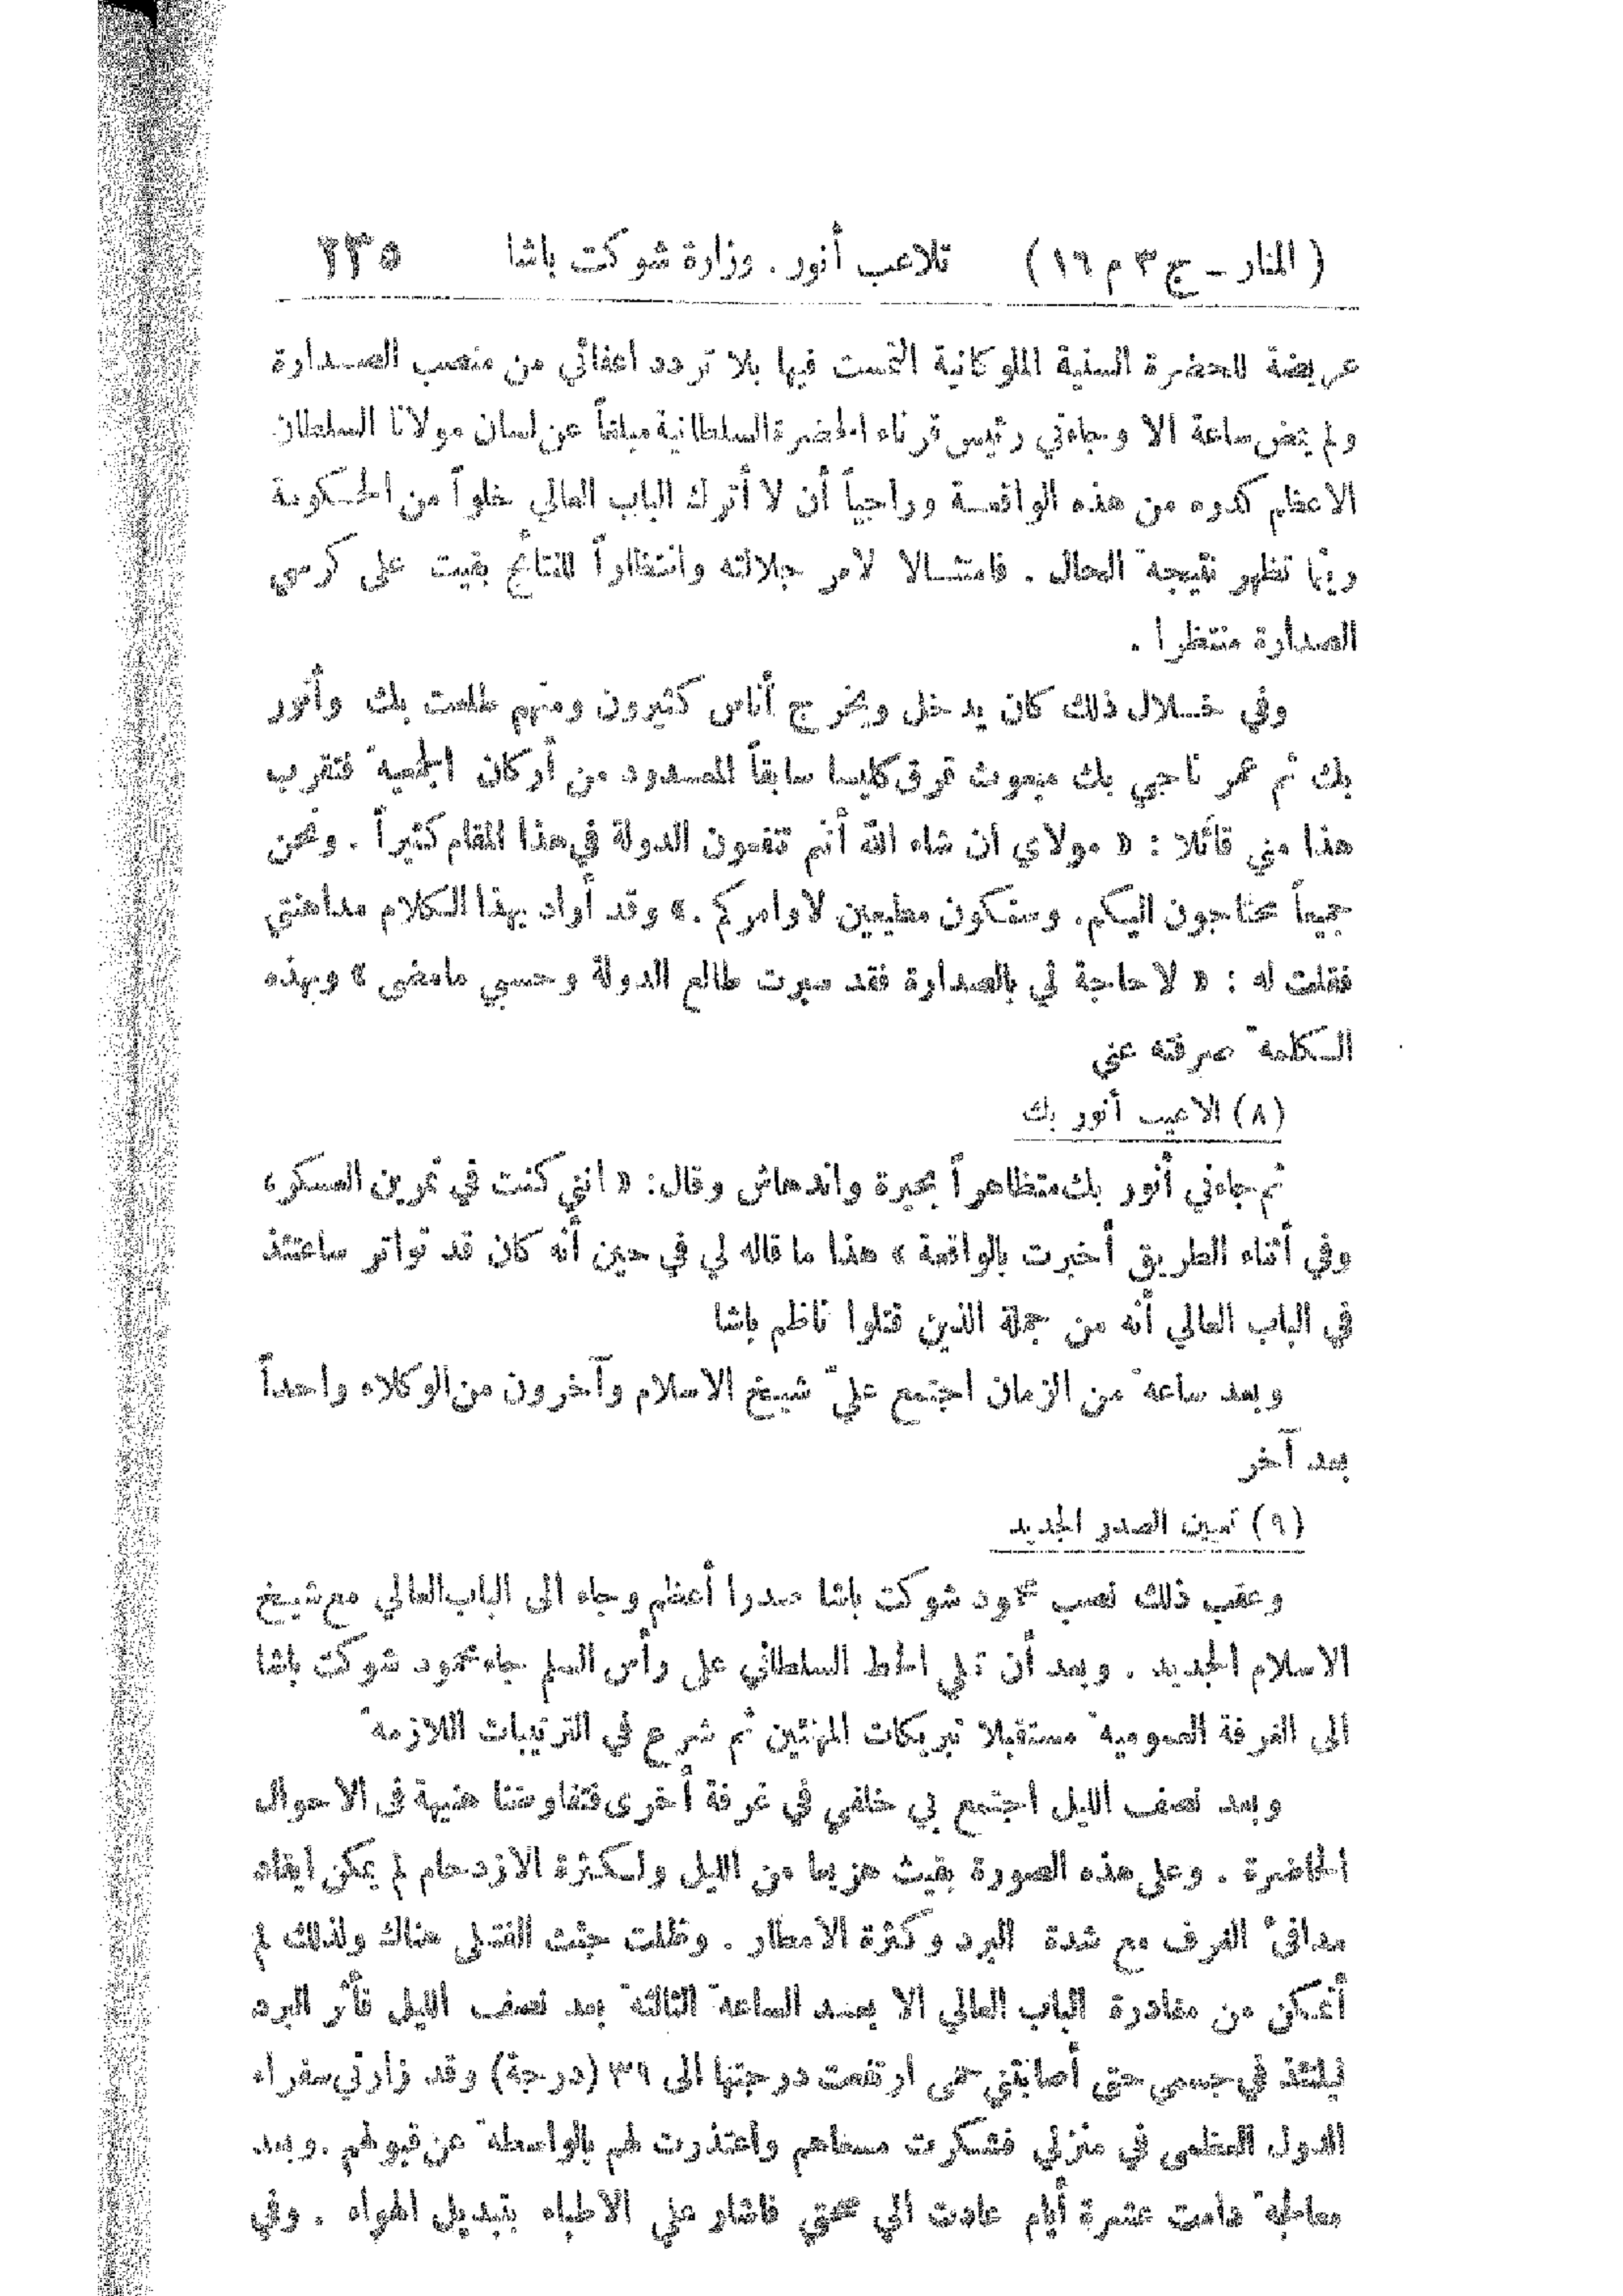 ( المنار – ج ٣ م ١٦ ) تلاعب أنور . وزارة شوكت باشا ٢٣٥
عريضة للحضرة السنية الملوكانية التمست فيها بلا تردد اعفائي من منصب الصدارة
ولم تمض ساعة الا وجاءني رئيس قرناء الحضرة السلطانية مبلغاً عن لسان مولانا السلطان
الاعظم كدره من هذه الواقعة وراجياً أن لا أترك الباب العالي خلواً من الحكومة
ريثما تظهر نتيجة الحال . فامتثالا لأمر جلالته وانتظاراً للنتائج بقيت على كرسي
الصدارة منتظرا .
وفي خلال ذلك كان يدخل ويخرج أناس كثيرون ومنهم طلعت بك وأنور
بك ثم عمر ناجي بك مبعوث قرق كليسا سابقاً المعدود من أركان الجمعية فتقرب
هذا مني قائلا : « مولاي ان شاء الله أنتم تفسون الدولة في هذا المقام كثيراً . ونحن
جميعاً محتاجون اليكم . وسنكون مطيعين لاوامركم . » وقد أراد بهذا الكلام مداهنتي
فقلت له : « لا حاجة لي بالصدارة فقد سبرت طالع الدولة وحسبي مامضى » وبهذه
الكلمة صرفته عني
(٨) الاعيب أنور بك
ثم جاءني أنور بك متظاهراً بحيرة واندهاش وقال : « انني كنت في تمرين العسكر ،
وفي أثناء الطريق أخبرت بالواقعة » هذا ما قاله لي في حين أنه كان قد تواتر ساعتئذ
في الباب العالي أنه من جملة الذين قتلوا ناظم باشا
وبعد ساعة من الزمان اجتمع عليّ شيخ الاسلام وآخرون من الوكلاء واحداً
بعد آخر
(٩) تعيين الصدر الجديد
وعقب ذلك نصب محمود شوكت باشا صدرا أعظم وجاء الى الباب العالي مع شيخ
الاسلام الجديد . وبعد أن تلي الخط السلطاني على رأس السلم جاء محمود شوكت باشا
الى الغرفة العمومية مستقبلا تبريكات المهنئين ثم شرع في الترتيبات اللازمة
وبعد نصف الليل اجتمع بي خلفي في غرفة أخرى فتفاوضنا هنيهة في الاحوال
الحاضرة . وعلى هذه الصورة بقيت هزيعا من الليل ولكثرة الازدحام لم يمكن ايقاد
مدافئ الغرف مع شدة البرد وكثرة الامطار . وظلت جثث القتلى هناك ولذلك لم
أتمكن من مغادرة الباب العالي الا بعد الساعة الثالثة بعد نصف الليل فأثر البرد
ليلتئذ في جسمي حتى أصابتني حمى ارتفعت درجتها الى ٣٩ (درجة) وقد زارني سفراء
الدول العظمى في منزلي فشكرت مسعاهم واعتذرت لهم بالواسطة عن قبولهم . وبعد
معالجة دامت عشرة أيام عادت الي صحتي فاشار علي الاطباء بتبديل الهواء . وفي